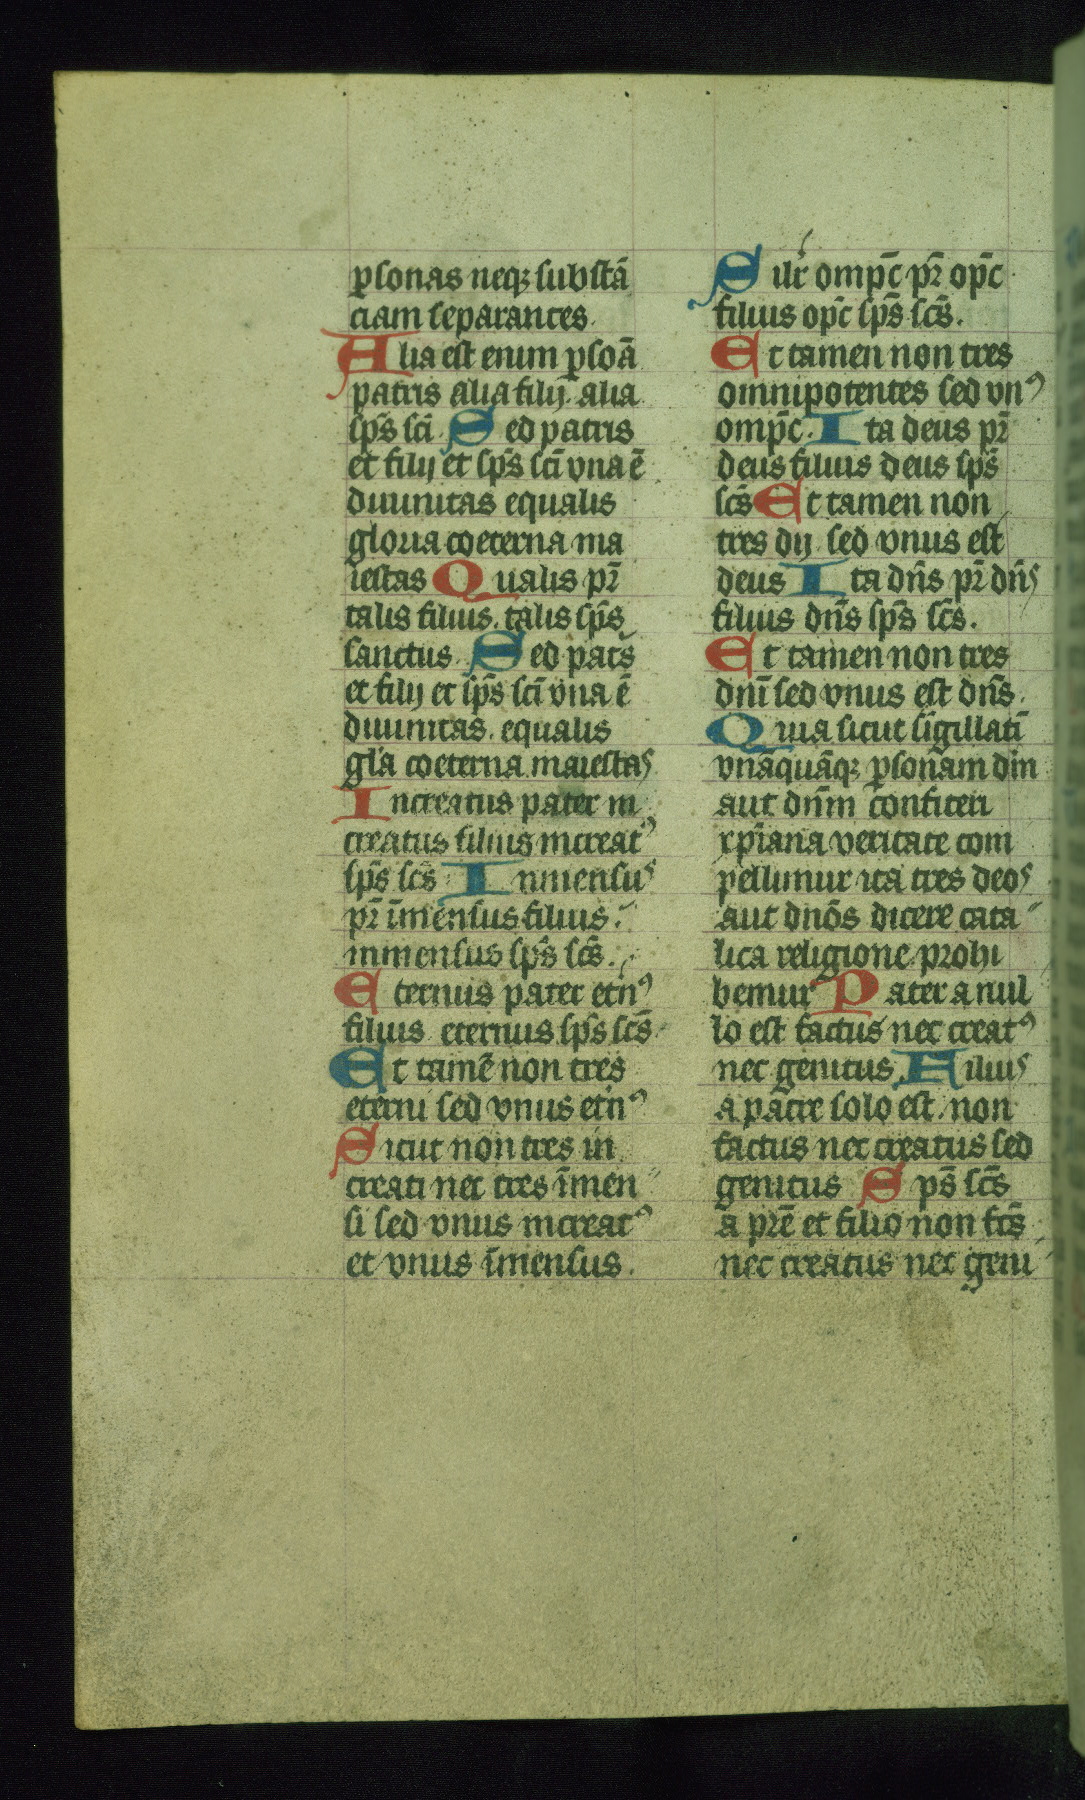 ꝑsonas neqꝫ substā
ciam separantes.
Alia est enim ꝑsoā
patris alia filij. alia
sp̄s sc̄i. Sed patris
et filij et sp̄s sc̄i vna ē
diuinitas equalis
gloria coeterna ma
iestas Qualis pr̄
talis filius. talis sp̄s
sanctus. Sed pat̄s
et filij et sp̄s sc̄i vna ē
diuinitas. equalis
gl̄a coeterna maiestas
Increatus pater in
creatus filius increatꝰ
sp̄s sc̄s Inmensus
pr̄ īmensus filius.
inmensus sp̄s sc̄s.
Eternus pater et̄nꝰ
filius eternus sp̄s sc̄s
Et tamē non tres
eterni sed vnus et̄nꝰ
Sicut non tres in
creati nec tres īmen
si sed vnus increatꝰ
et vnus īmensus.
Silr̄ omp̄c pr̄ op̄c
filius op̄c sp̄s sc̄s.
Et tamen non tres
omnipotentes sed vnꝰ
omp̄c. Ita deus pr̄
deus filius deus sp̄s
sc̄s Et tamen non
tres dij sed vnus est
deus Ita dn̄s pr̄ dn̄s
filius dn̄s sp̄s sc̄s.
Et tamen non tres
dn̄i sed vnus est dn̄s.
Quia sicut sīgillatī
vnāquāqꝫ ꝑsonam dīn
aut dn̄m confiteri
xp̄iana veritate com
pellimur ita tres deos
aut dn̄os dicere cata
lica religione prohi
bemur Pater a nul
lo est factus nec creatꝰ
nec genitus. Filius
a patre solo est. non
factus nec creatus sed
genitus Sp̄s sc̄s
a pr̄e et filio non fc̄s
nec creatus nec geni